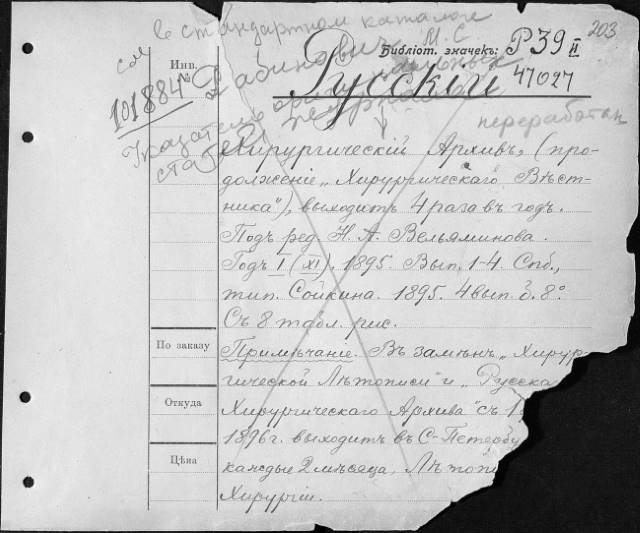 203
см в стандартном каталоге
Рабинович М. С
Указатель оригинальных
статей журнала
переработан
Инв.
№
101884
Библіот. значекъ: P39 II
47027
Русскій
Хирургическій Архивъ, (про-
долженіе „Хирургическаго Вѣст-
ника“), выходитъ 4 раза въ годъ.
Подъ ред. Н. А. Вельяминова.
Годъ I (XI). 1895. Вып. 1-4. Спб.,
тип. Сойкина. 1895. 4 вып. б. 8°.
Съ 8 табл. рис.
По заказу
Примѣчаніе. Въ замѣнъ „Хирур-
гической Лѣтописи“ и „Русска
Откуда
Хирургическаго Архива“ съ 1
1896 г. выходитъ въ С-Петербу
Цѣна
каждые 2 мѣсяца, Лѣтопи
Хирургіи.